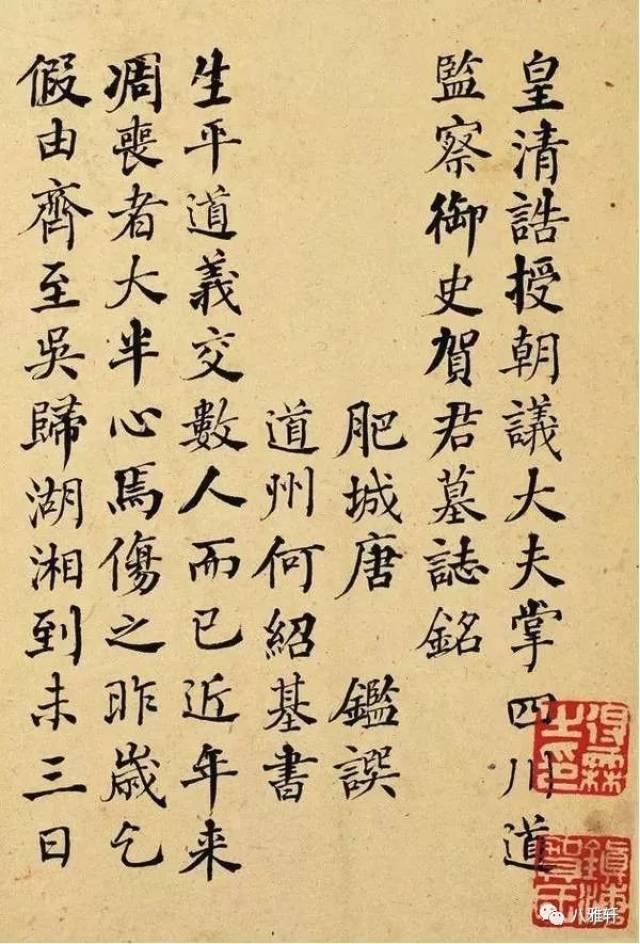 皇清誥授朝議大夫掌四川道
監察御史賀君墓誌銘
肥城唐鑑譔
道州何紹基書
生平道義交數人而已近年来
凋喪者大半心焉傷之昨歳乞
假由齊至吳歸湖湘到未三日
八雅轩